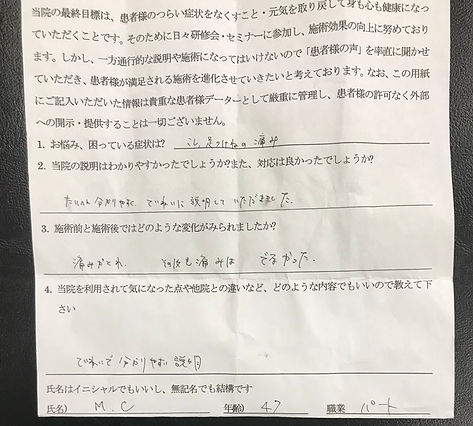 当院の最終目標は、患者様のつらい症状をなくすこと・元気を取り戻して身も心も健康になっ
ていただくことです。そのために日々研修会・セミナーに参加し、施術効果の向上に努めており
ます。しかし、一方通行的な説明や施術になってはいけないので「患者様の声」を率直に聞かせ
ていただき、患者様が満足される施術を進化させていきたいと考えております。なお、この用紙
にご記入いただいた情報は貴重な患者様データーとして厳重に管理し、患者様の許可なく外部
への開示・提供することは一切ございません。
1. お悩み、困っている症状は? こし、足つけねの痛み
2. 当院の説明はわかりやすかったでしょうか?また、対応は良かったでしょうか?
たいへん分かりやすく、ていねいに説明していただきました。
3. 施術前と施術後ではどのような変化がみられましたか?
痛みがとれ、その後も痛みは でなかった。
4. 当院を利用されて気になった点や他院との違いなど、どのような内容でもいいので教えて下
さい
ていねいで分かりやすい説明
氏名はイニシャルでもいいし、無記名でも結構です
氏名) M.C 年齢) 47 職業 パート